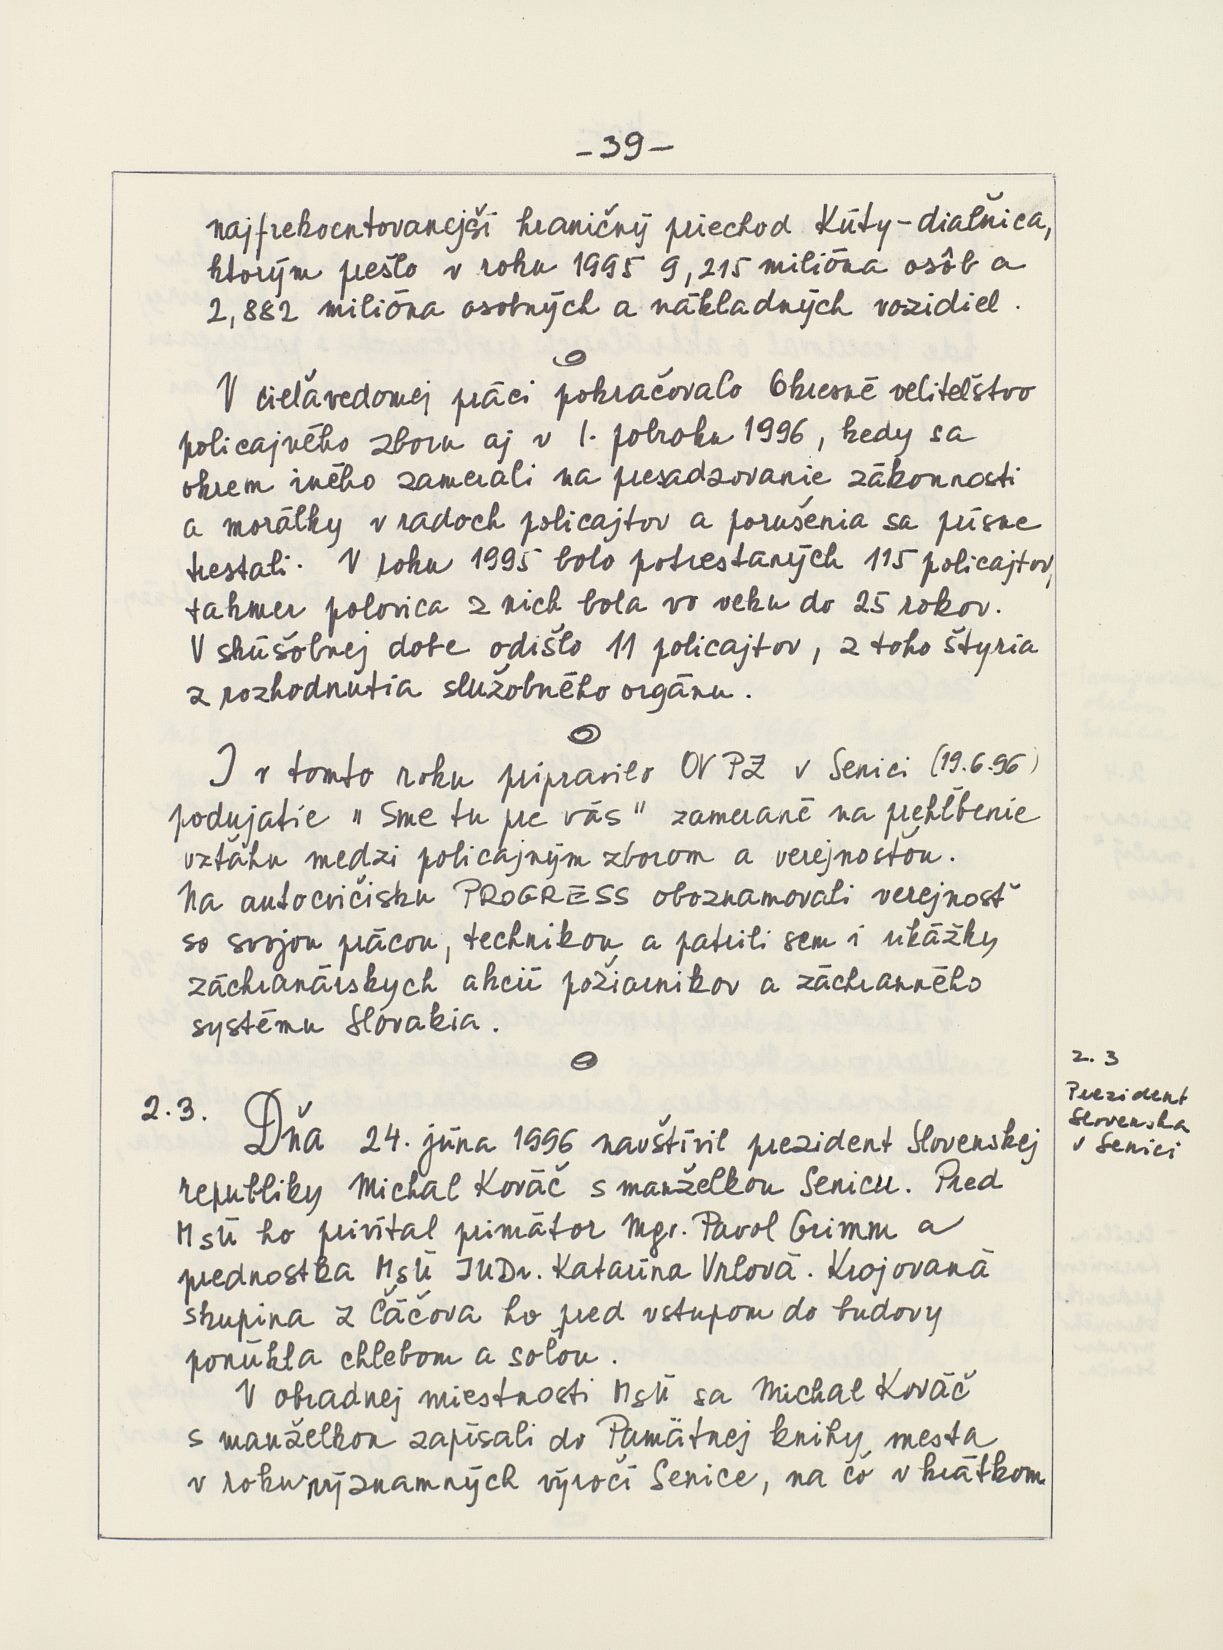 -39-
najfrekventovanejší hraničný priechod Kúty-diaľnica,
ktorým prešlo v roku 1995 9,215 milióna osôb a
2,882 milióna osobných a nákladných vozidiel.
V cieľavedomej práci pokračovalo Okresné veliteľstvo
policajného zboru aj v 1. polroku 1996, kedy sa
okrem iného zamerali na presadzovanie zákonnosti
a morálky v radoch policajtov a porušenia sa prísne
trestali. V roku 1995 bolo potrestaných 115 policajtov,
takmer polovica z nich bola vo veku do 25 rokov.
V skúšobnej dobe odišlo 11 policajtov, z toho štyria
z rozhodnutia služobného orgánu.
I v tomto roku pripravilo OV PZ v Senici (19.6.96)
podujatie "Sme tu pre vás" zamerané na prehĺbenie
vzťahu medzi policajným zborom a verejnosťou.
Na autocvičisku PROGRESS oboznamovali verejnosť
so svojou prácou, technikou a patrili sem i ukážky
záchranárskych akcií požiarnikov a záchranného
systému Slovakia.
2. 3
Prezident
Slovenska
v Senici
2.3. Dňa 24. júna 1996 navštívil prezident Slovenskej
republiky Michal Kováč s manželkou Senicu. Pred
MsÚ ho privítal primátor Mgr. Pavol Grimm a
prednostka MsÚ JUDr. Katarína Vrlová. Krojovaná
skupina z Čáčova ho pred vstupom do budovy
ponúkla chlebom a soľou.
V obradnej miestnosti MsÚ sa Michal Kováč
s manželkou zapísali do Pamätnej knihy mesta
v roku významných výročí Senice, na čo v krátkom